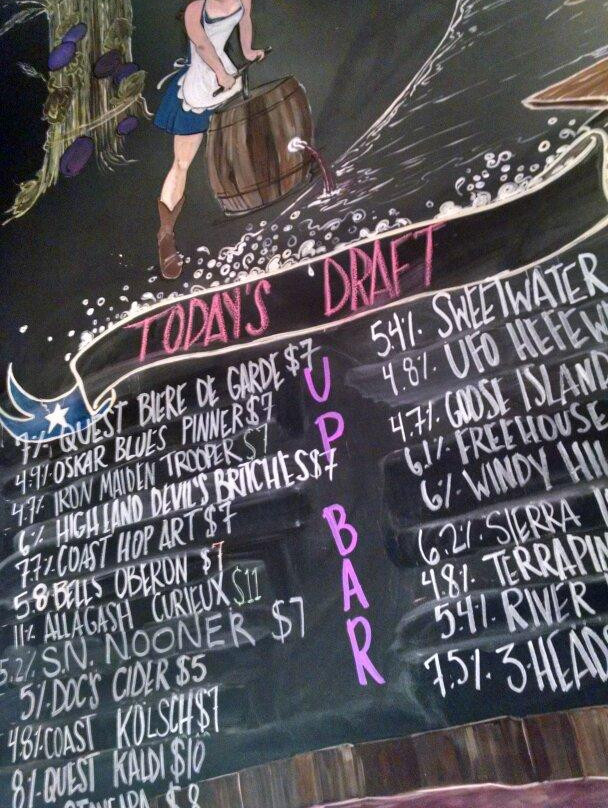 TODAY'S DRAFT
7% QUEST BIERE DE GARDE $7
4.9% OSKAR BLUES PINNER $7
4.7% IRON MAIDEN TROOPER $7
6% HIGHLAND DEVIL'S BRITCHES $7
7.7% COAST HOP ART $7
5.8 BELLS OBERON $7
11% ALLAGASH CURIEUX $11
5.2% S.N. NOONER $7
5% DOC'S CIDER $5
4.8% COAST KÖLSCH $7
8% QUEST KALDI $10
$8
UP BAR
5.4% SWEETWATER
4.8% UFO HEFEW
4.7% GOOSE ISLAND
6.1% FREEHOUSE
6% WINDY HI
6.2% SIERRA
4.8% TERRAPIN
5.4% RIVER
7.5% 3 HEAD